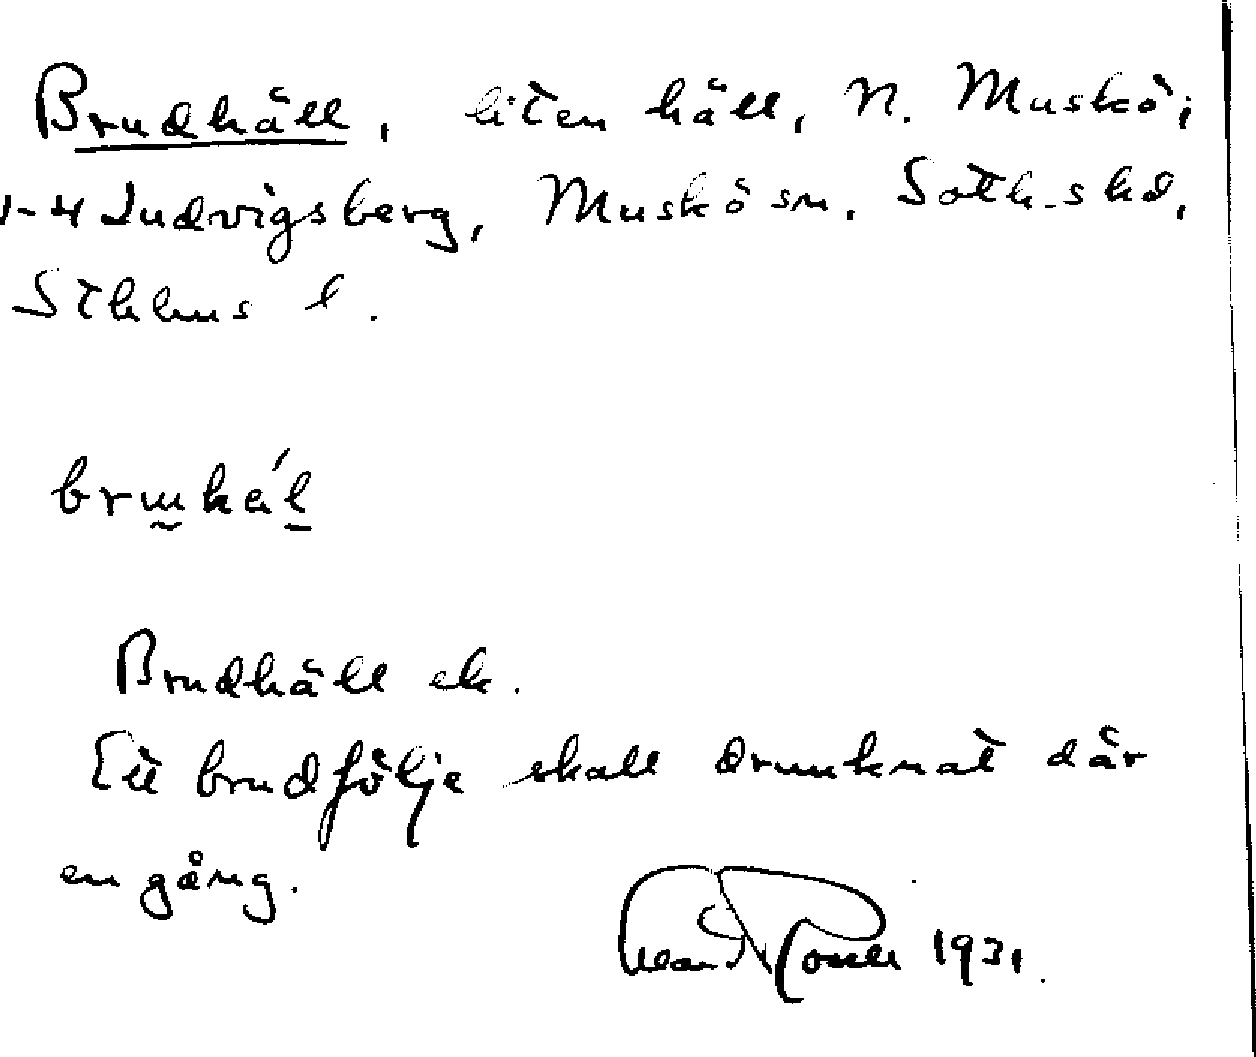 Brudhäll, liten häll, N. Muskö,
1-4 Ludvigsberg, Muskö sn. Soth-s hd,
Sthlms l.
Brudhäll ek.
Ett brudfölje skall drunknat där
en gång.
1931.